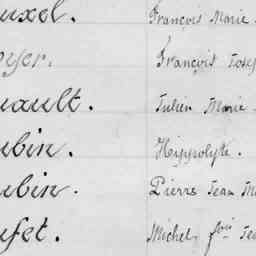 uxel. François Marie
oyer. François Josep
uault. Julien Marie
ubin. Hippolyte.
ubin. Pierre Jean M
ufet. Michel, fois Jea